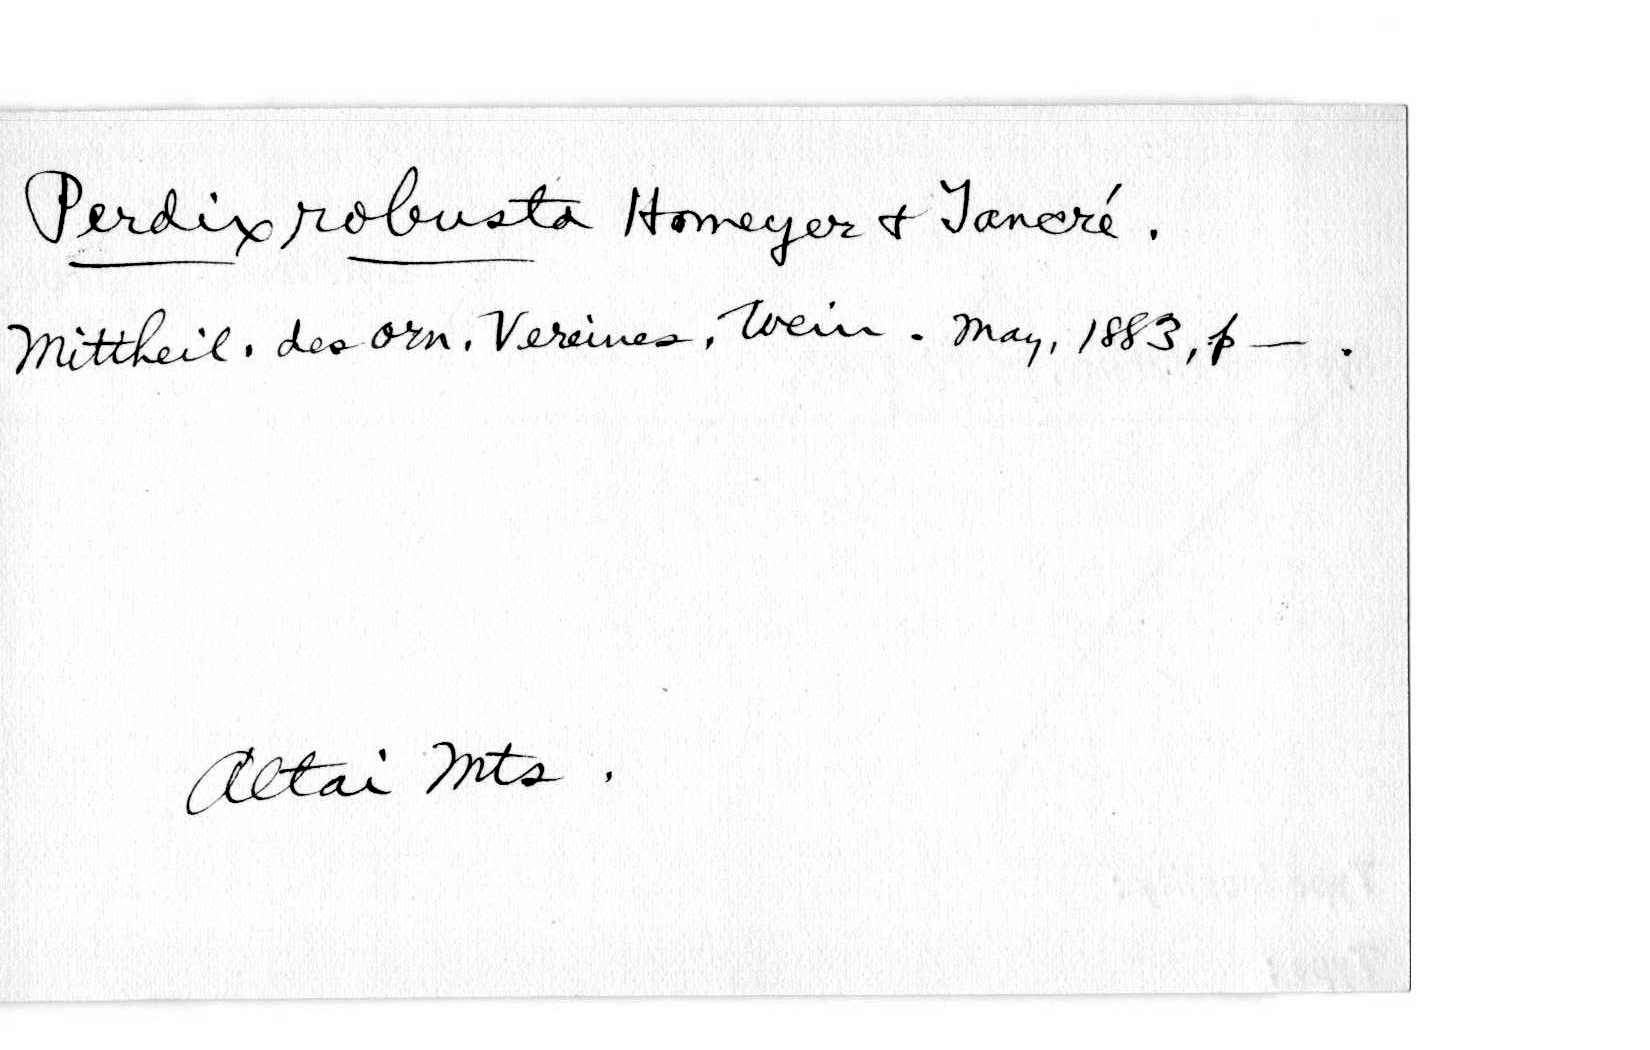 Perdix robusta Homeyer & Tancré.
Mittheil. des orn. Vereines, Wein. May, 1883, p — .
Altai Mts.